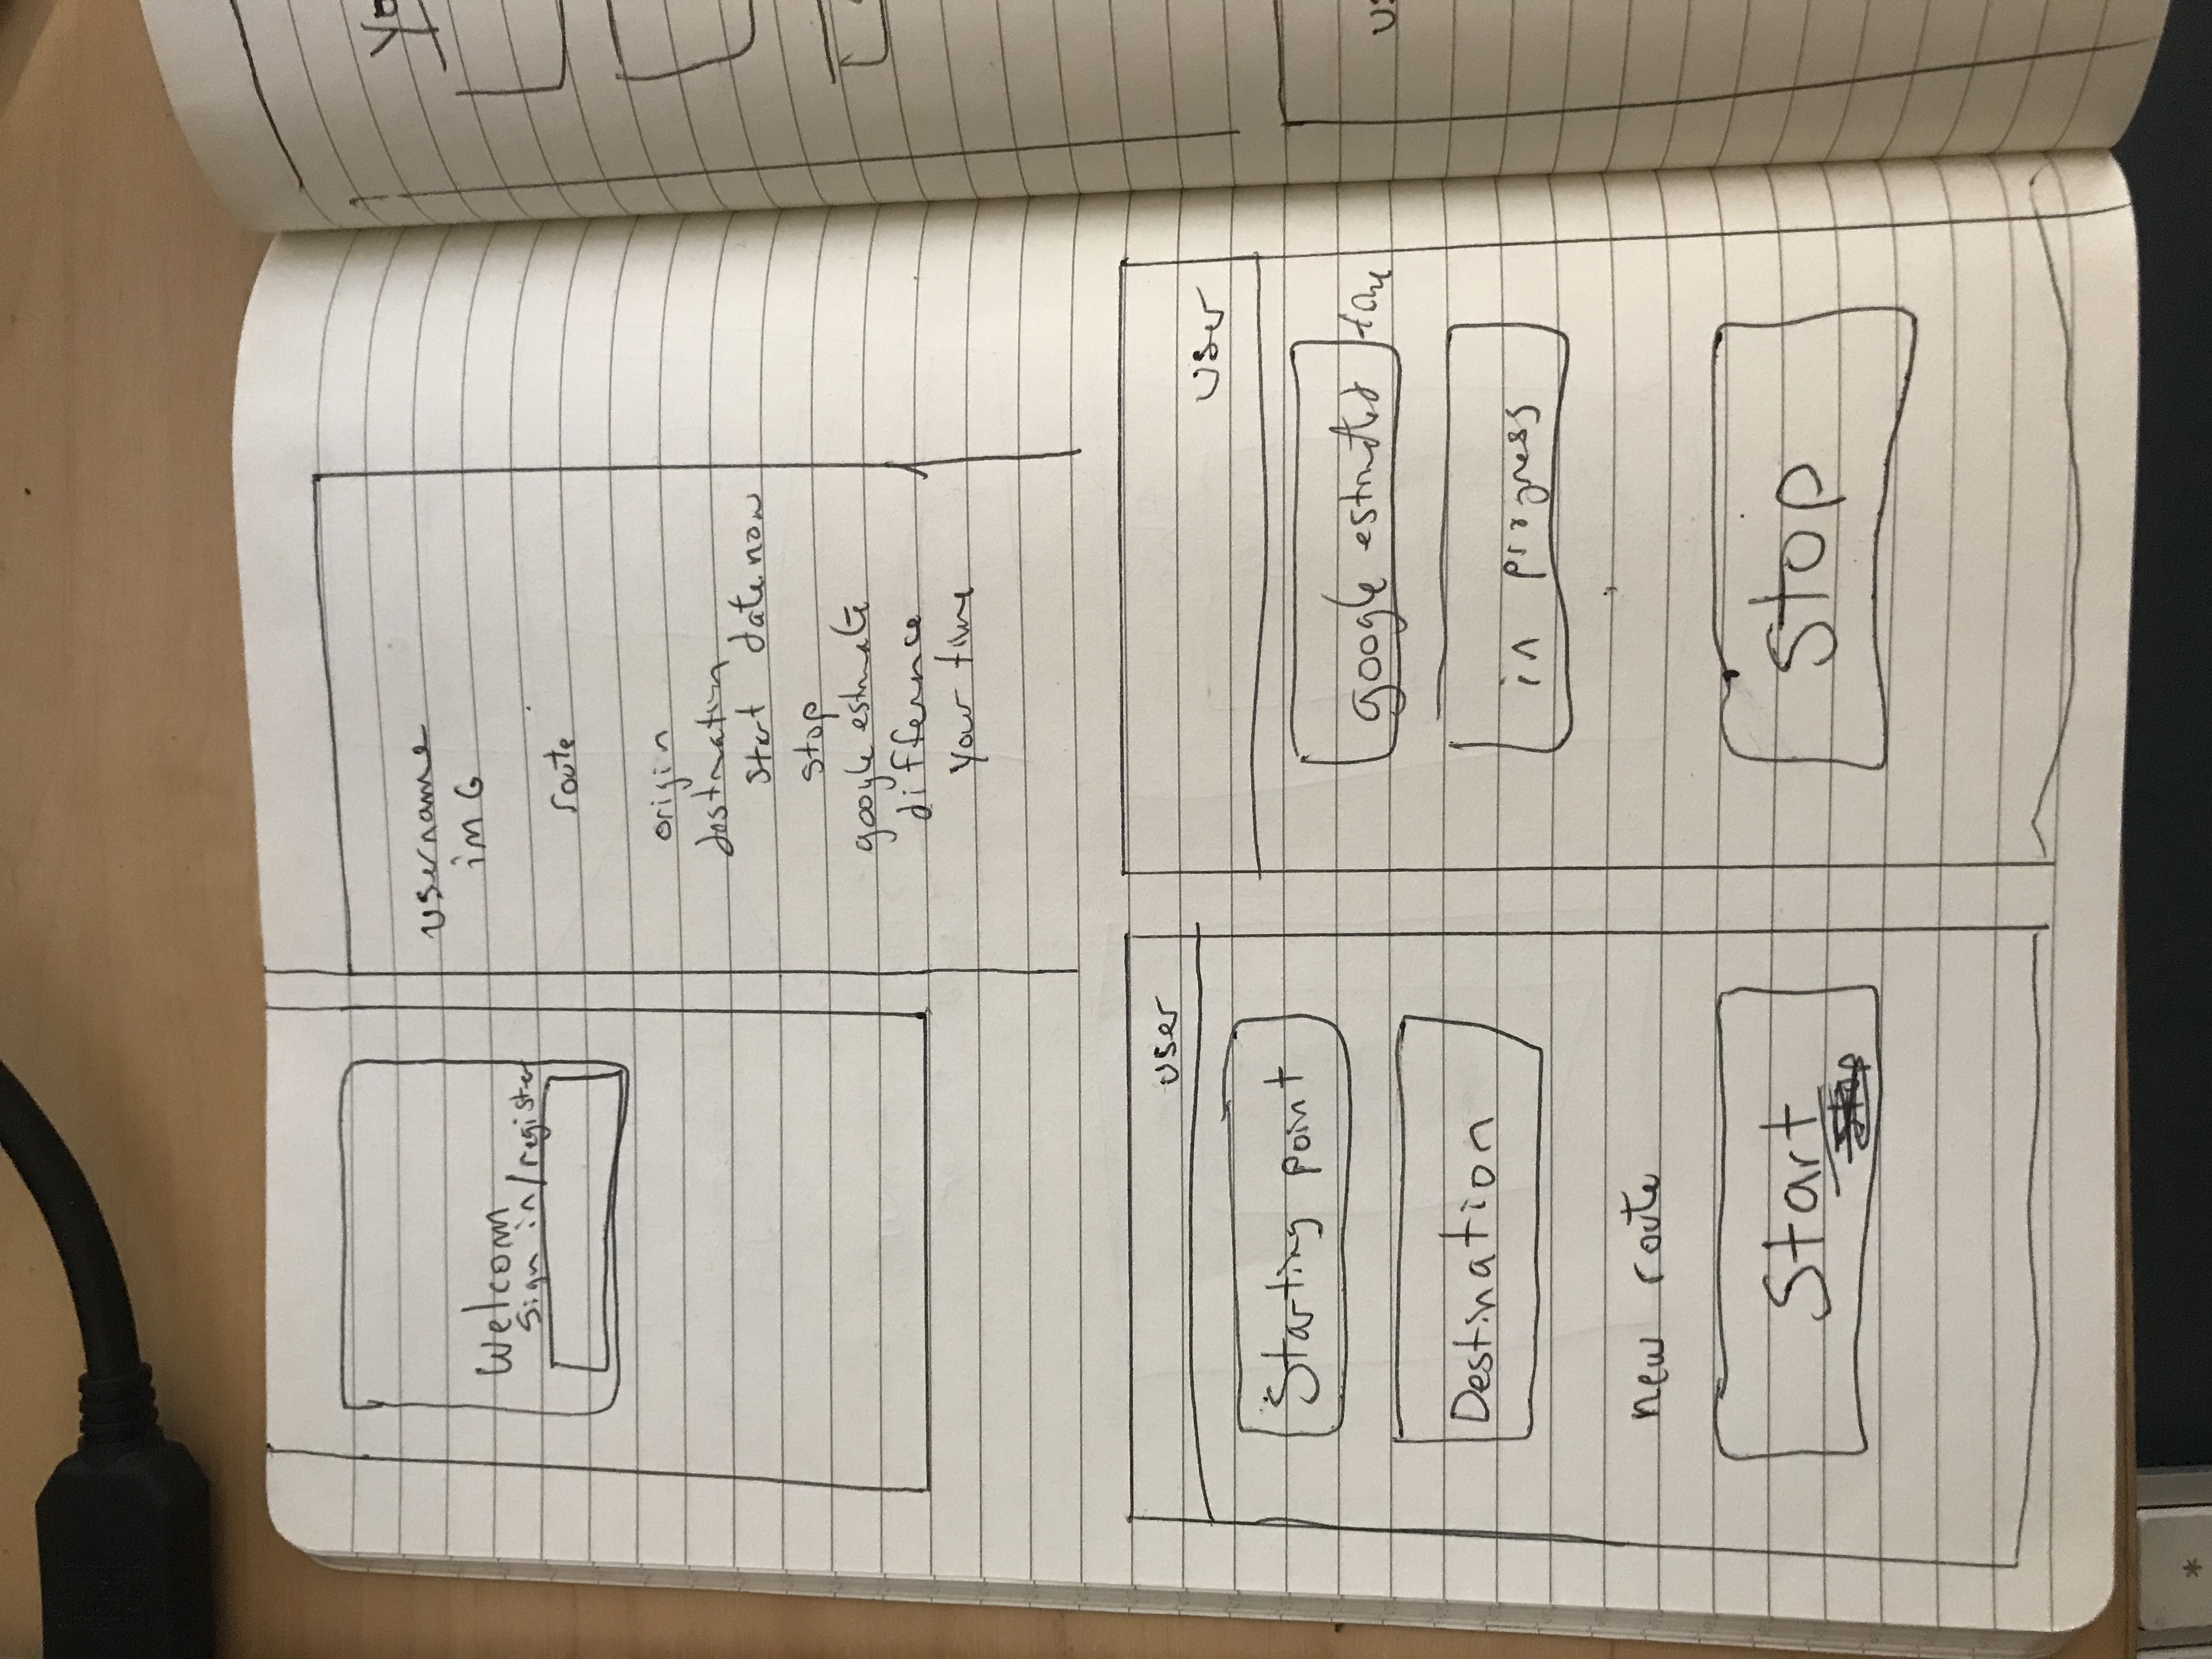 Welcom
Sign in/register
username
imG
route
origin
destination
start date.now
stop
google estimate
difference
your time
user
Starting point
Destination
new route
Start
Stop
user
google estimated time
in progress
Stop